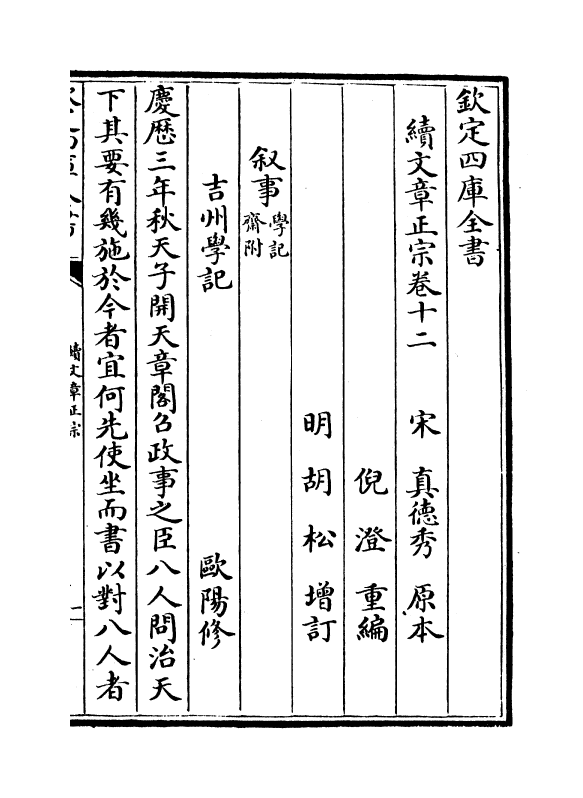 欽定四庫全書
續文章正宗卷十二
宋 真德秀 原本
倪澄 重編
明 胡松 增訂
叙事 學記齋附
吉州學記 歐陽修
慶歷三年秋天子開天章閣召政事之臣八人問治天
下其要有幾施於今者宜何先使坐而書以對八人者
續文章正宗
一